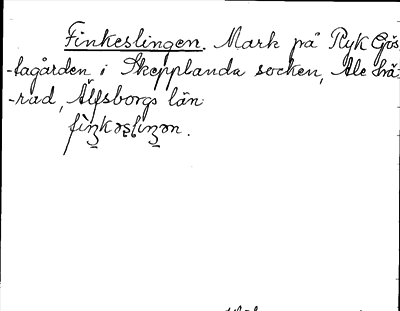 Finkeslingen. Mark på Ryk Gös-
-tagården i Skepplanda socken, Ale hä-
-rad, Älfsborgs län